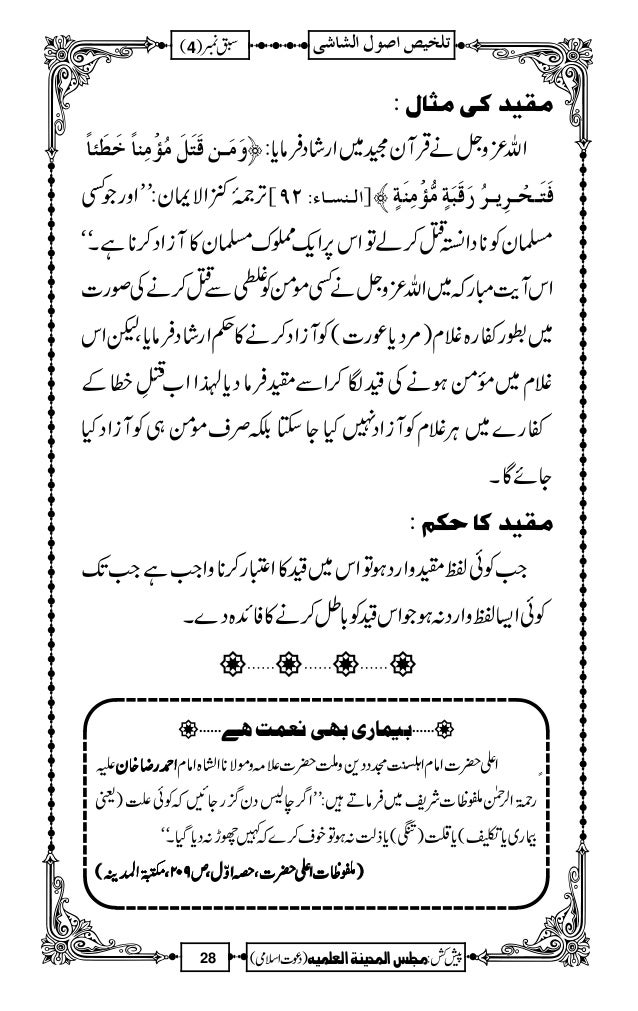 تلخیص اصول الشاشی
سبق نمبر (4)
مقید کی مثال :
اللہ عزوجل نے قرآن مجید میں ارشاد فرمایا: ﴿وَمَن قَتَلَ مُؤْمِناً خَطَئاً
فَتَحْرِيرُ رَقَبَةٍ مُّؤْمِنَةٍ ﴾[النساء: ۹۲]ترجمۂ کنز الایمان: ’’اور جو کسی
مسلمان کو نادانستہ قتل کرلے تو اس پر ایک مملوک مسلمان کا آزاد کرنا ہے۔‘‘
اس آیت مبارکہ میں اللہ عزوجل نے کسی مومن کو غلطی سے قتل کرنے کی صورت
میں بطور کفارہ غلام (مرد یا عورت) کو آزاد کرنے کا حکم ارشاد فرمایا، لیکن اس
غلام میں مؤمن ہونے کی قید لگا کر اسے مقید فرما دیا لہذا اب قتلِ خطا کے
کفارے میں ہر غلام کو آزاد نہیں کیا جا سکتا بلکہ صرف مومن ہی کو آزاد کیا
جائے گا۔
مقید کا حکم :
جب کوئی لفظ مقید وارد ہو تو اس میں قید کا اعتبار کرنا واجب ہے جب تک
کوئی ایسا لفظ وارد نہ ہو جو اس قید کو باطل کرنے کا فائدہ دے۔
......بیماری بھی نعمت ھے......
اعلی حضرت امام اہلسنت مجدد دین وملت حضرت علامہ ومولانا الشاہ امام احمد رضا خان علیہ
رحمۃ الرحمٰن ملفوظات شریف میں فرماتے ہیں: ’’اگر چالیس دن گزر جائیں کہ کوئی علت (یعنی
بیماری یا تکلیف) یا قلت (تنگی) یا ذلت نہ ہو تو خوف کرے کہ کہیں چھوڑ نہ دیا گیا۔‘‘
(ملفوظات اعلی حضرت، حصہ اوّل، ص ۲۰۹، مکتبۃ المدینہ)
پیش کش: مجلس المدینة العلمیه (دعوت اسلامی)
28